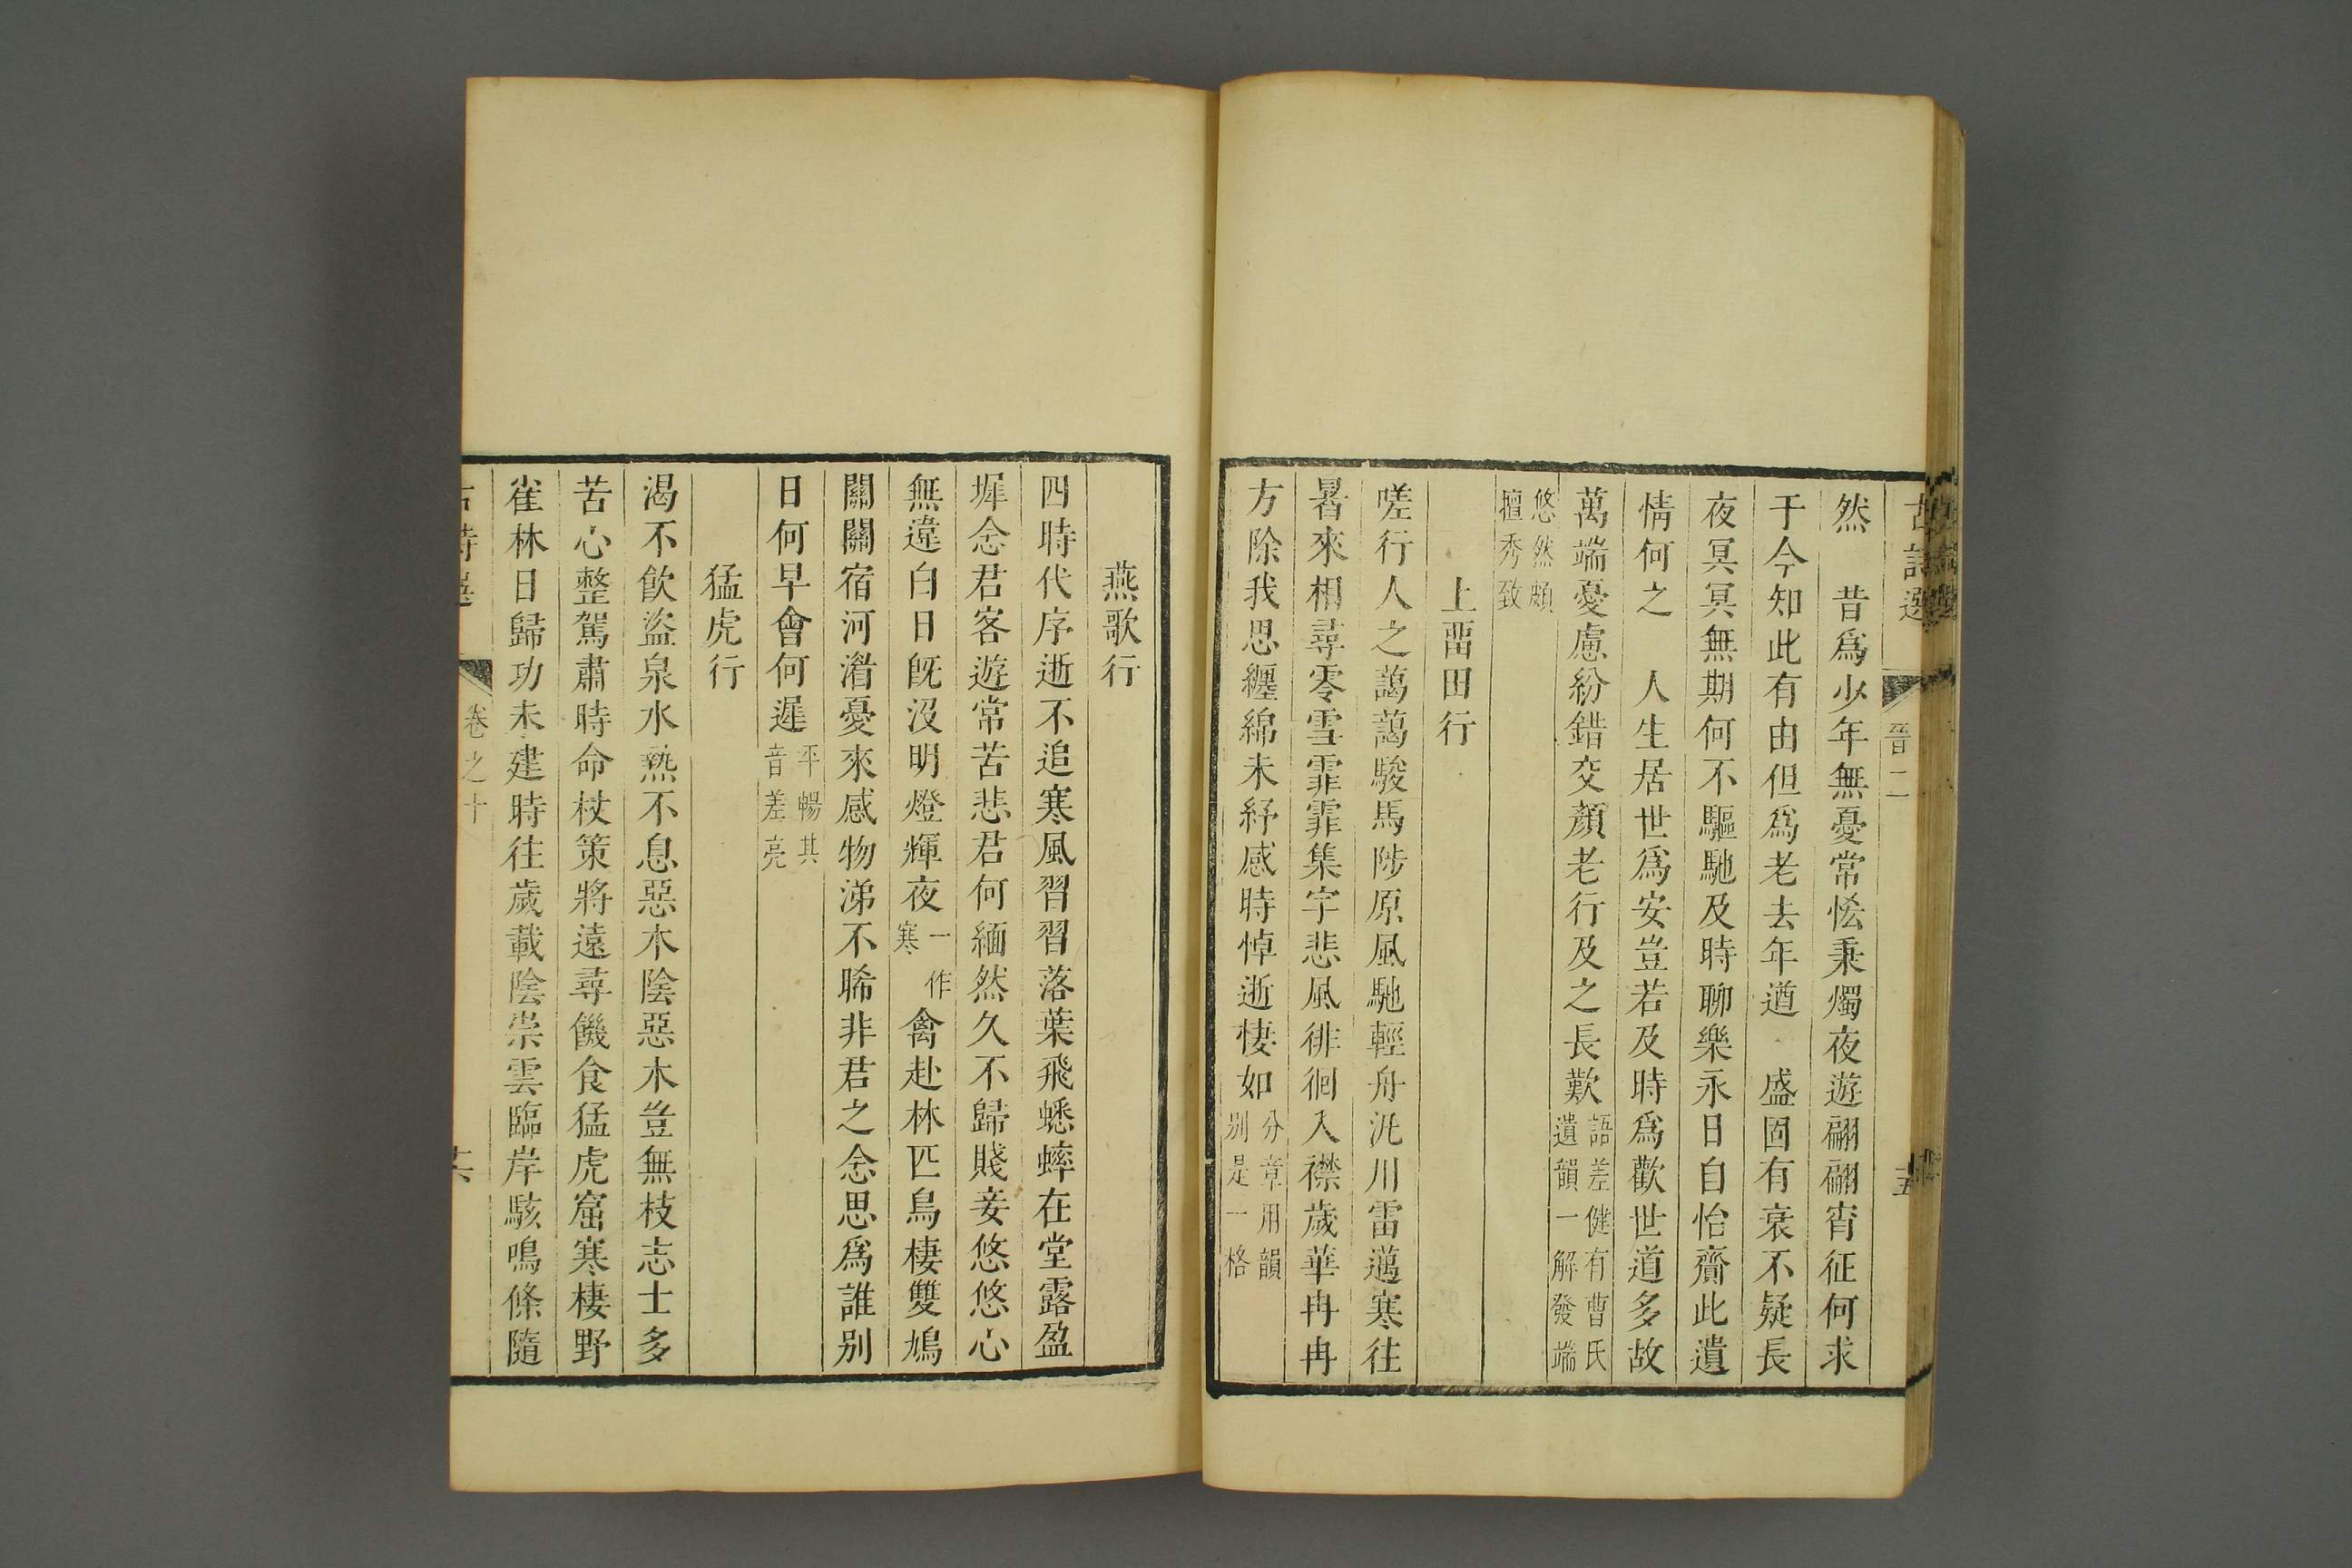 晉二
然　昔爲少年無憂常怪秉燭夜遊翩翩宵征何求
于今知此有由但爲老去年遒　盛固有衰不疑長
夜冥冥無期何不驅馳及時聊樂永日自怡齎此遺
情何之　人生居世爲安豈若及時爲歡世道多故
萬端憂慮紛錯交顏老行及之長歎語差健有曹氏遺韻一解發端
悠然頗擅秀致
上畱田行
嗟行人之藹藹駿馬陟原風馳輕舟汎川雷邁寒往
暑來相尋零雪霏霏集宇悲風徘徊入襟歲華冉冉
方除我思纏綿未紓感時悼逝悽如分章用韻別是一格
燕歌行
四時代序逝不追寒風習習落葉飛蟋蟀在堂露盈
墀念君客遊常苦悲君何緬然久不歸賤妾悠悠心
無違白日旣沒明燈輝夜一作寒禽赴林匹鳥棲雙鳩
關關宿河湄憂來感物涕不晞非君之念思爲誰別
日何早會何遲平暢其音差亮
猛虎行
渴不飲盜泉水熱不息惡木陰惡木豈無枝志士多
苦心整駕肅時命杖策將遠尋饑食猛虎窟寒棲野
雀林日歸功未建時往歲載陰崇雲臨岸駭鳴條隨
卷之十